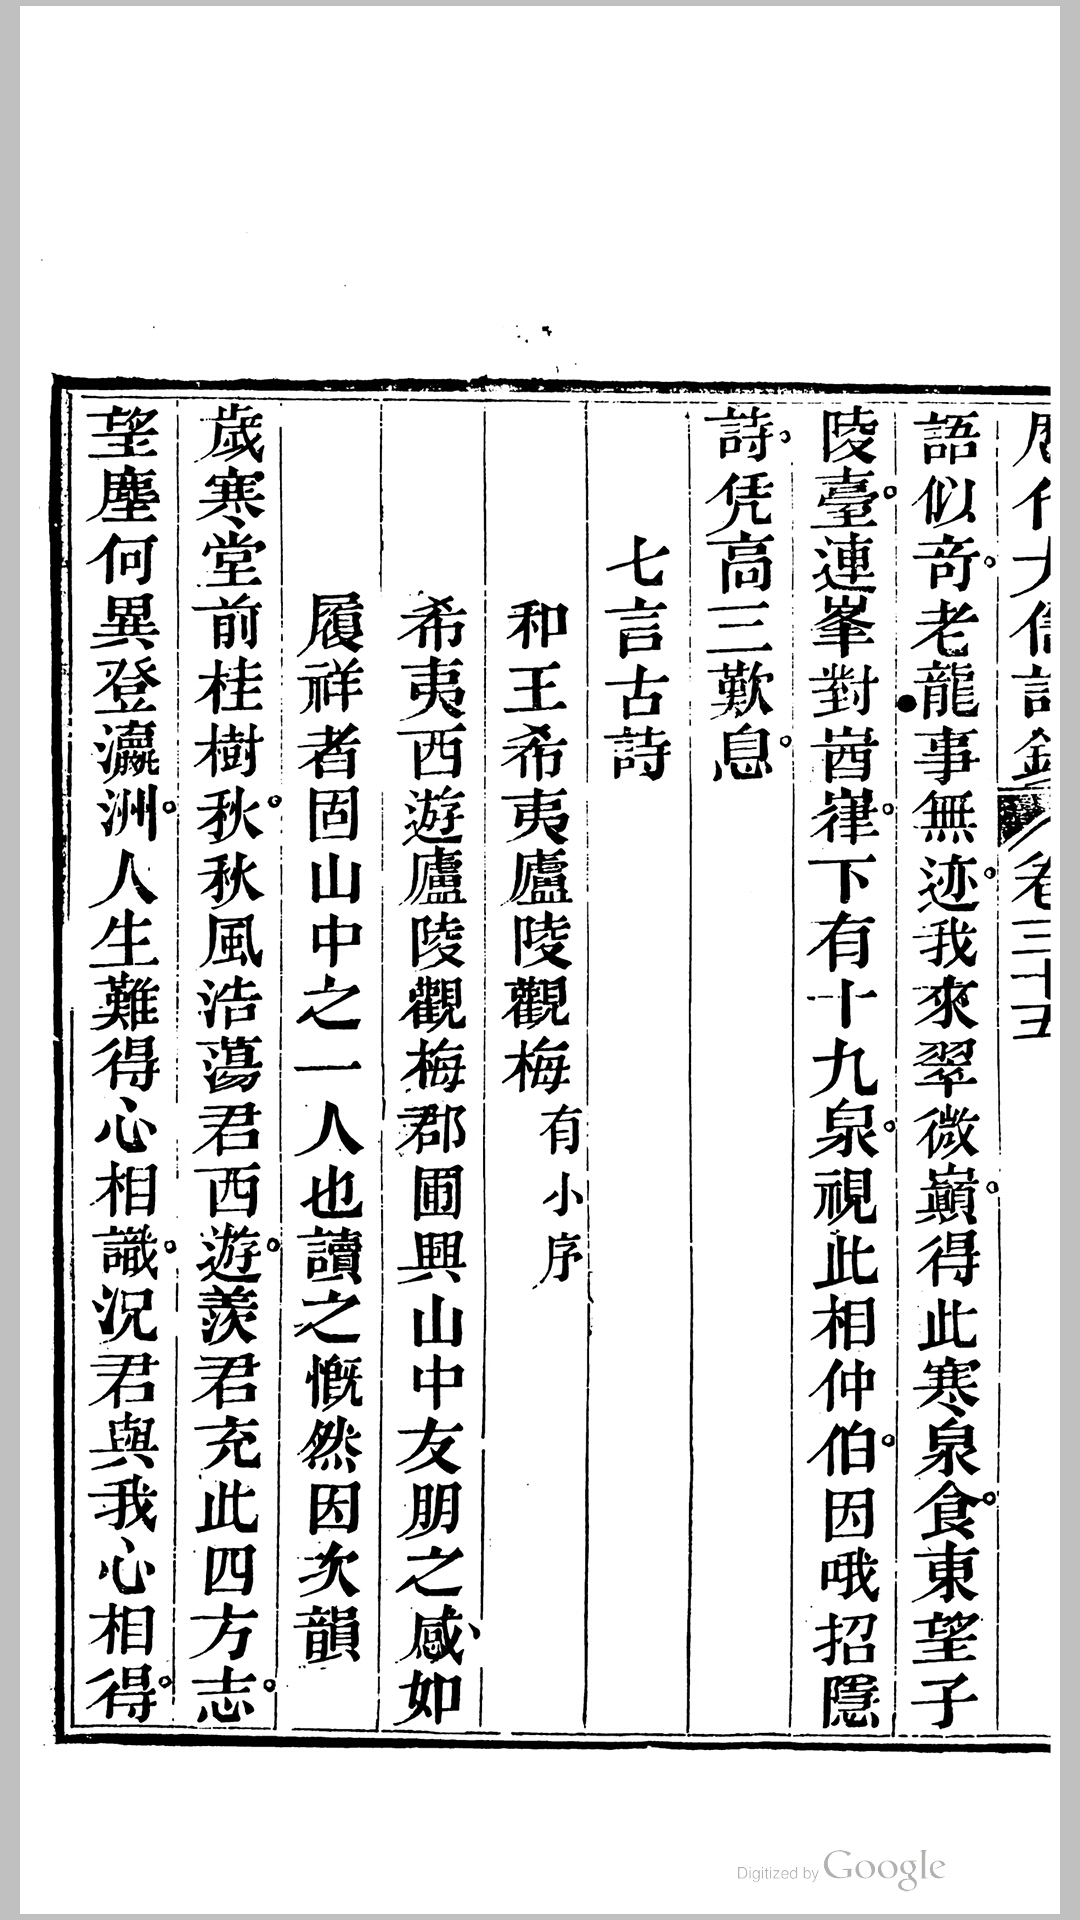 歷代大儒詩鈔 卷三十五
語似奇。老龍事無迹。我來翠微巔。得此寒泉食。東望子
陵臺。連峯對崷崒。下有十九泉。視此相仲伯。因哦招隱
詩。凭高三歎息。
七言古詩
和王希夷廬陵觀梅 有小序
希夷西遊廬陵觀梅郡圃興山中友朋之感如
履祥者固山中之一人也讀之慨然因次韻
歲寒堂前桂樹秋。秋風浩蕩君西遊。羨君充此四方志。
望塵何異登瀛洲。人生難得心相識。況君與我心相得。
Digitized by Google